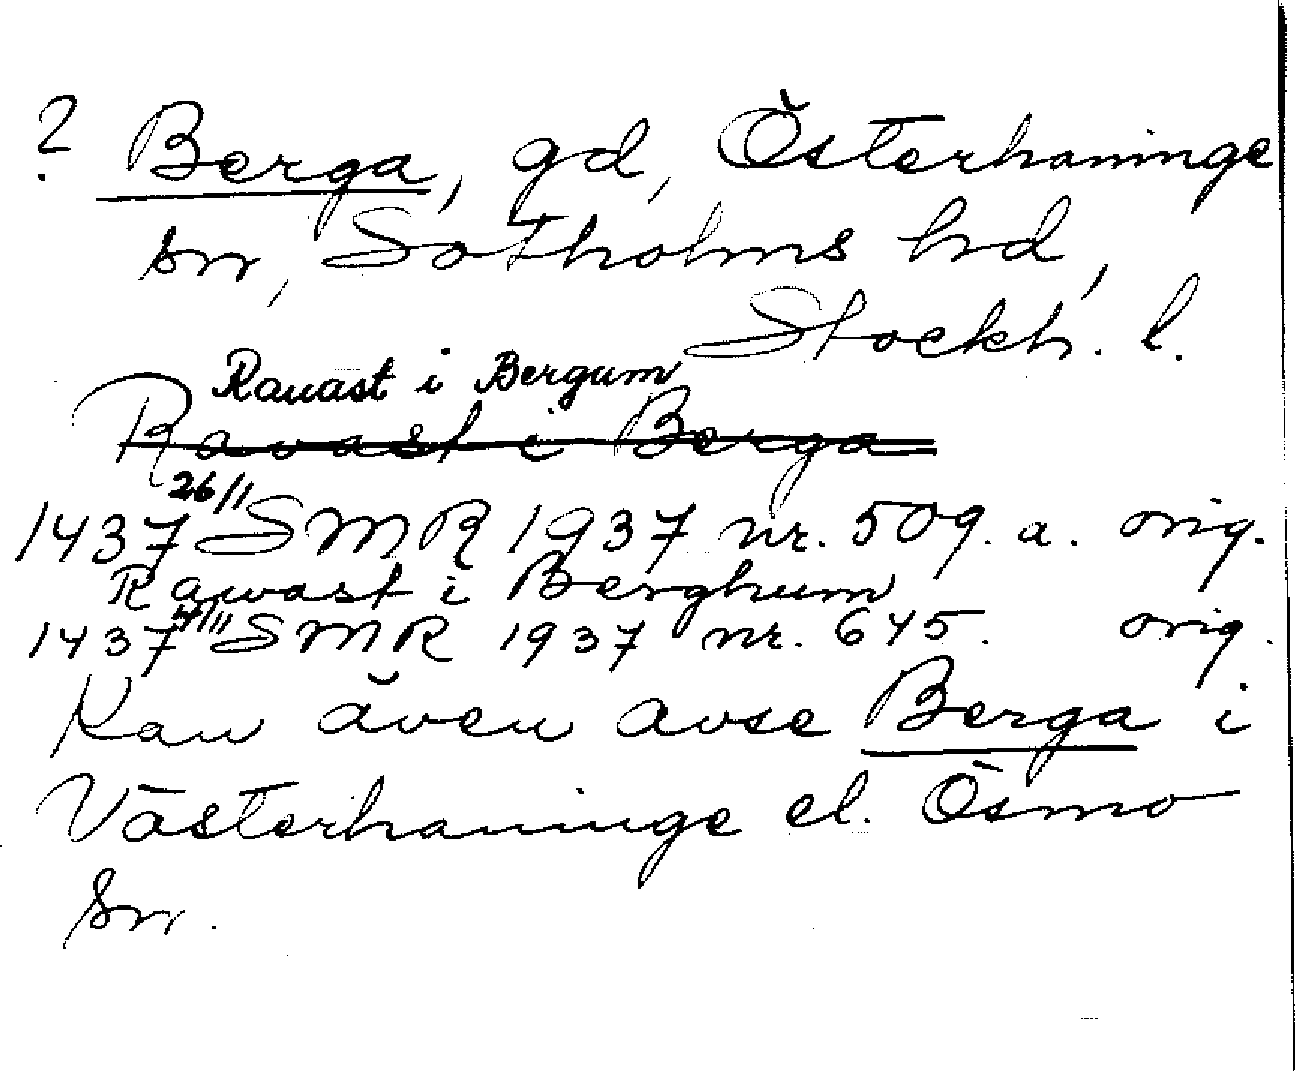 ? Berga, gd, Österhaninge
sn, Sotholms hd,
Stockh. l.
Rauast i Bergum
Ravast i Berga
1437 26/11 SMR 1937 nr. 509. a. orig.
Rawast i Berghum
1437 SMR 1937 nr. 645. orig.
Kan även avse Berga i
Västerhaninge el. Ösmo
sn.